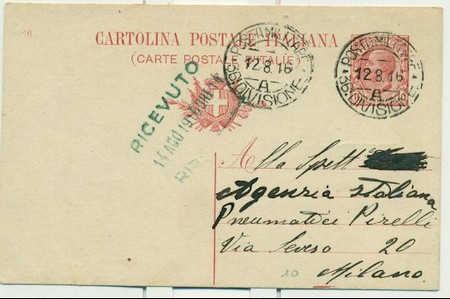 CARTOLINA POSTALE ITALIANA
(CARTE POSTALE D'ITALIE)
POSTA MILITARE
12.8.16
A
36ª DIVISIONE
POSTA MILITARE
12.8.16
A
36ª DIVISIONE
RICEVUTO
14 AGO 19
Alla Spett
Agenzia Italiana
Pneumatici Pirelli
Via Seveso 20
Milano
10